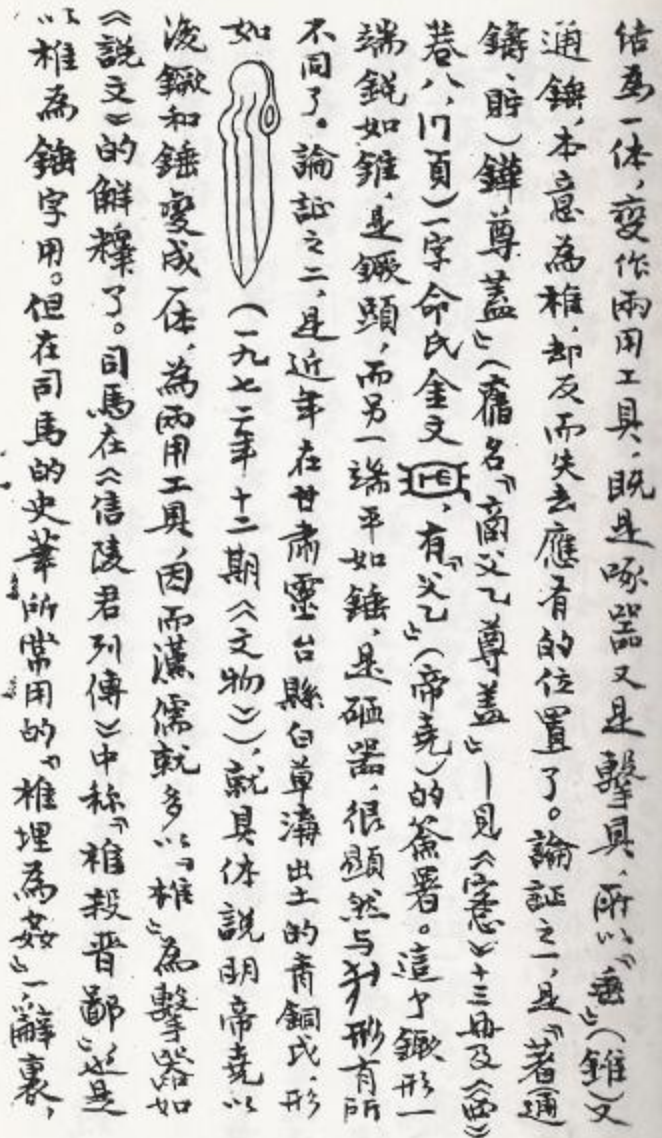 结為一体，变作兩用工具，既是啄器又是擊具，所以『垂』（錐）又
通錘，本意為椎，却反而失去應有的位置了。論証之一，是『著(通
鑄、貯)鏵尊蓋』（舊名『商父乙尊蓋』—見《窓》十三册及《西》
巷八，17頁）一字命氏金文，有『父乙』（帝堯）的簽署。這个鐝形一
端鋭如錐，是鐝頭，而另一端平如錘，是砸器，很顯然与形有所
不同了。論証之二，是近年在甘肅靈台縣白草溝出土的青銅戉，形
如（一九七二年十二期《文物》），就具体說明帝堯以
後鐝和錘变成一体，為兩用工具，因而漢儒就多以『椎』為擊器如
《說文》的解釋了。司馬在《信陵君列傳》中称『椎殺晋鄙』也是
以椎為錘字用。但在司馬的史筆所常用的『椎埋為姦』一辭裏，